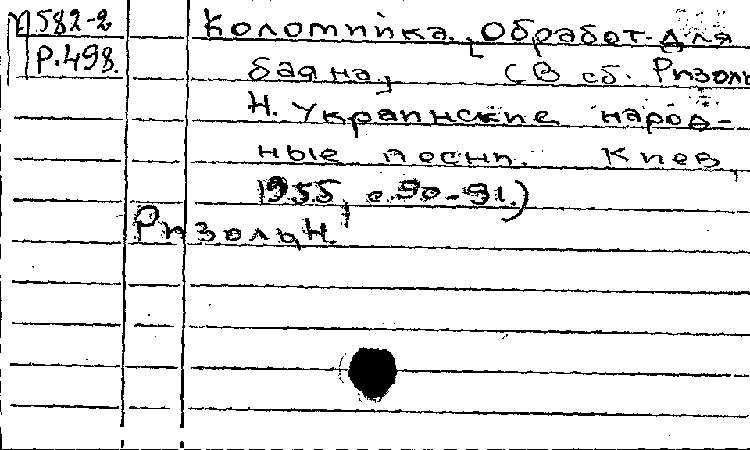 П582-2 Коломийка. [Обработ. для
Р.498. баяна] (В сб. Ризоль
Н. Украинские народ-
ные песни. Киев,
1955, с.90-91.)
Ризоль Н.